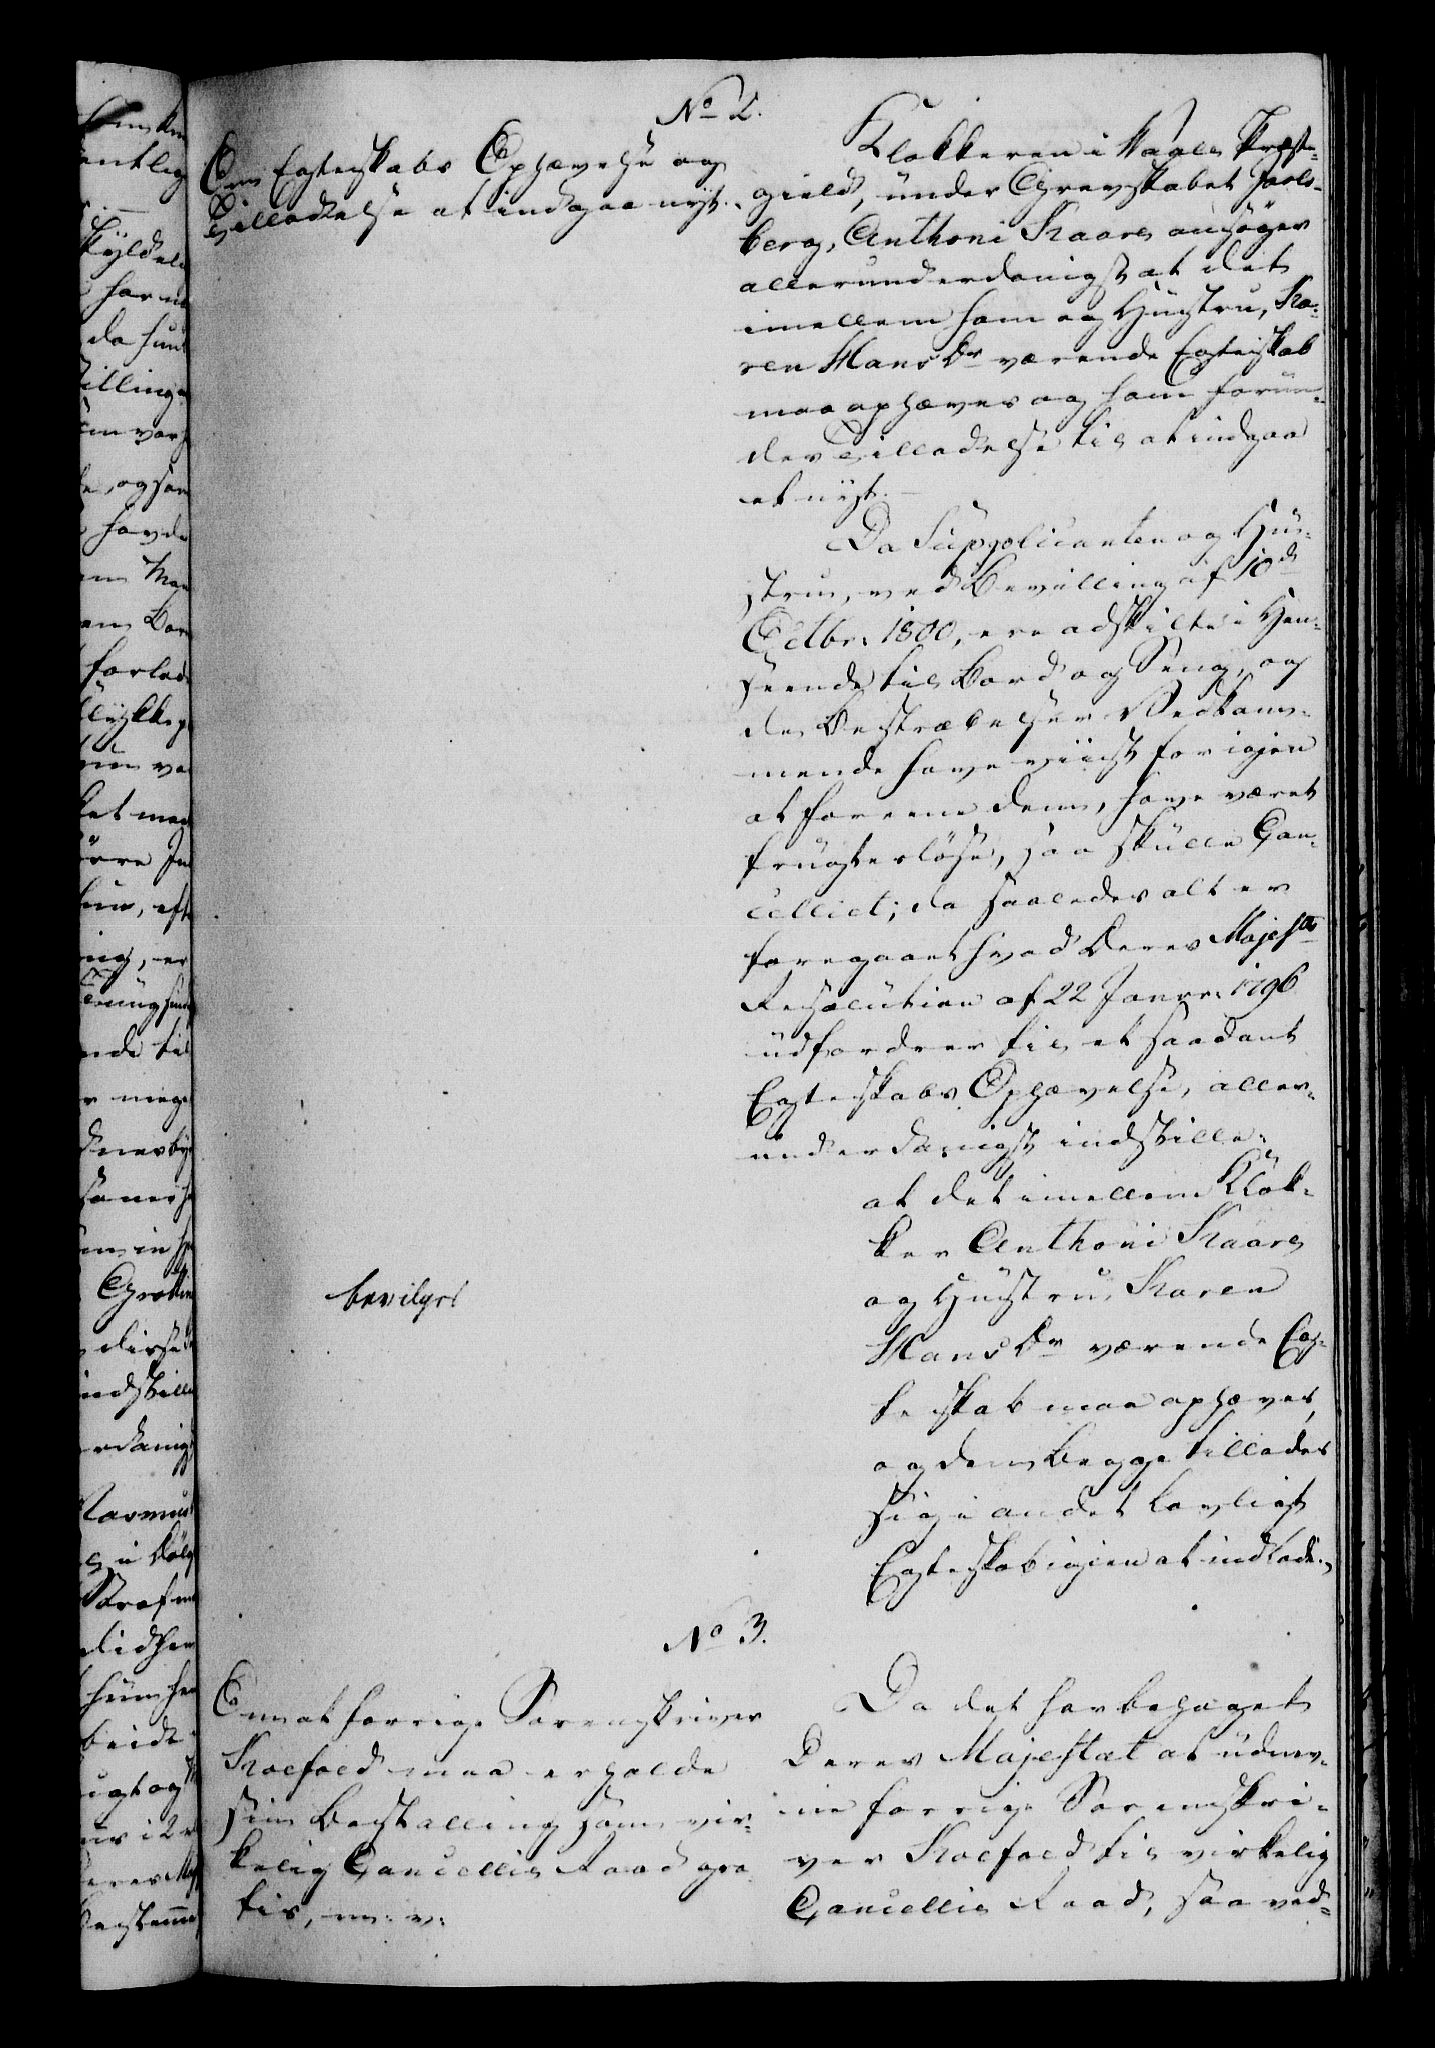 No 2.
Om Egteskabs Ophævelse og
Tilladelse at indgaae nyt.
Klokkeren i Vaale Præste-
gield, under Grevskabet Jarls-
berg, Anthoni Kaare ansøger
allerunderdanigst at det
imellem ham og Hustru, Ka-
ren Hans Dr værende Egteskab
maa ophæves og ham forun-
des Tilladelse til at indgaae
et nyt.
Da Supplicanten og Hu-
strue, ved Bevilling af 10de
Octbr: 1800, ere adskilte i Hen-
seende til Bord og Seng, og
de Bestræbelser Vedkom-
mende have viist for igjen
at foreene dem, have været
frugtesløse, saa skulle Can-
celliet; da saaledes alt er
foregaaet hvad Deres Majests
Resolution af 22 Janvr: 1796
udfordrer til et saadant
Egteskabs Ophævelse, aller-
underdanigst indstille:
at det imellem Klok-
ker Anthoni Kaare
og Hustrue Karen
Hans Dr værende Eg-
teskab maa ophæves,
og dem begge tillades
sig i andet lovligt
Egteskab igien at indlade.
bevilget
No 3.
Om at forrige Sorenskriver
Koefoed maa erholde
sin Bestalling som vir-
kelig Cancellie Raad gra-
tis, m: v:
Da det har behaget
Deres Majestæt at udnæv-
ne forrige Sorenskri-
ver Koefoed til virkelig
Cancellie Raad, saa ved-